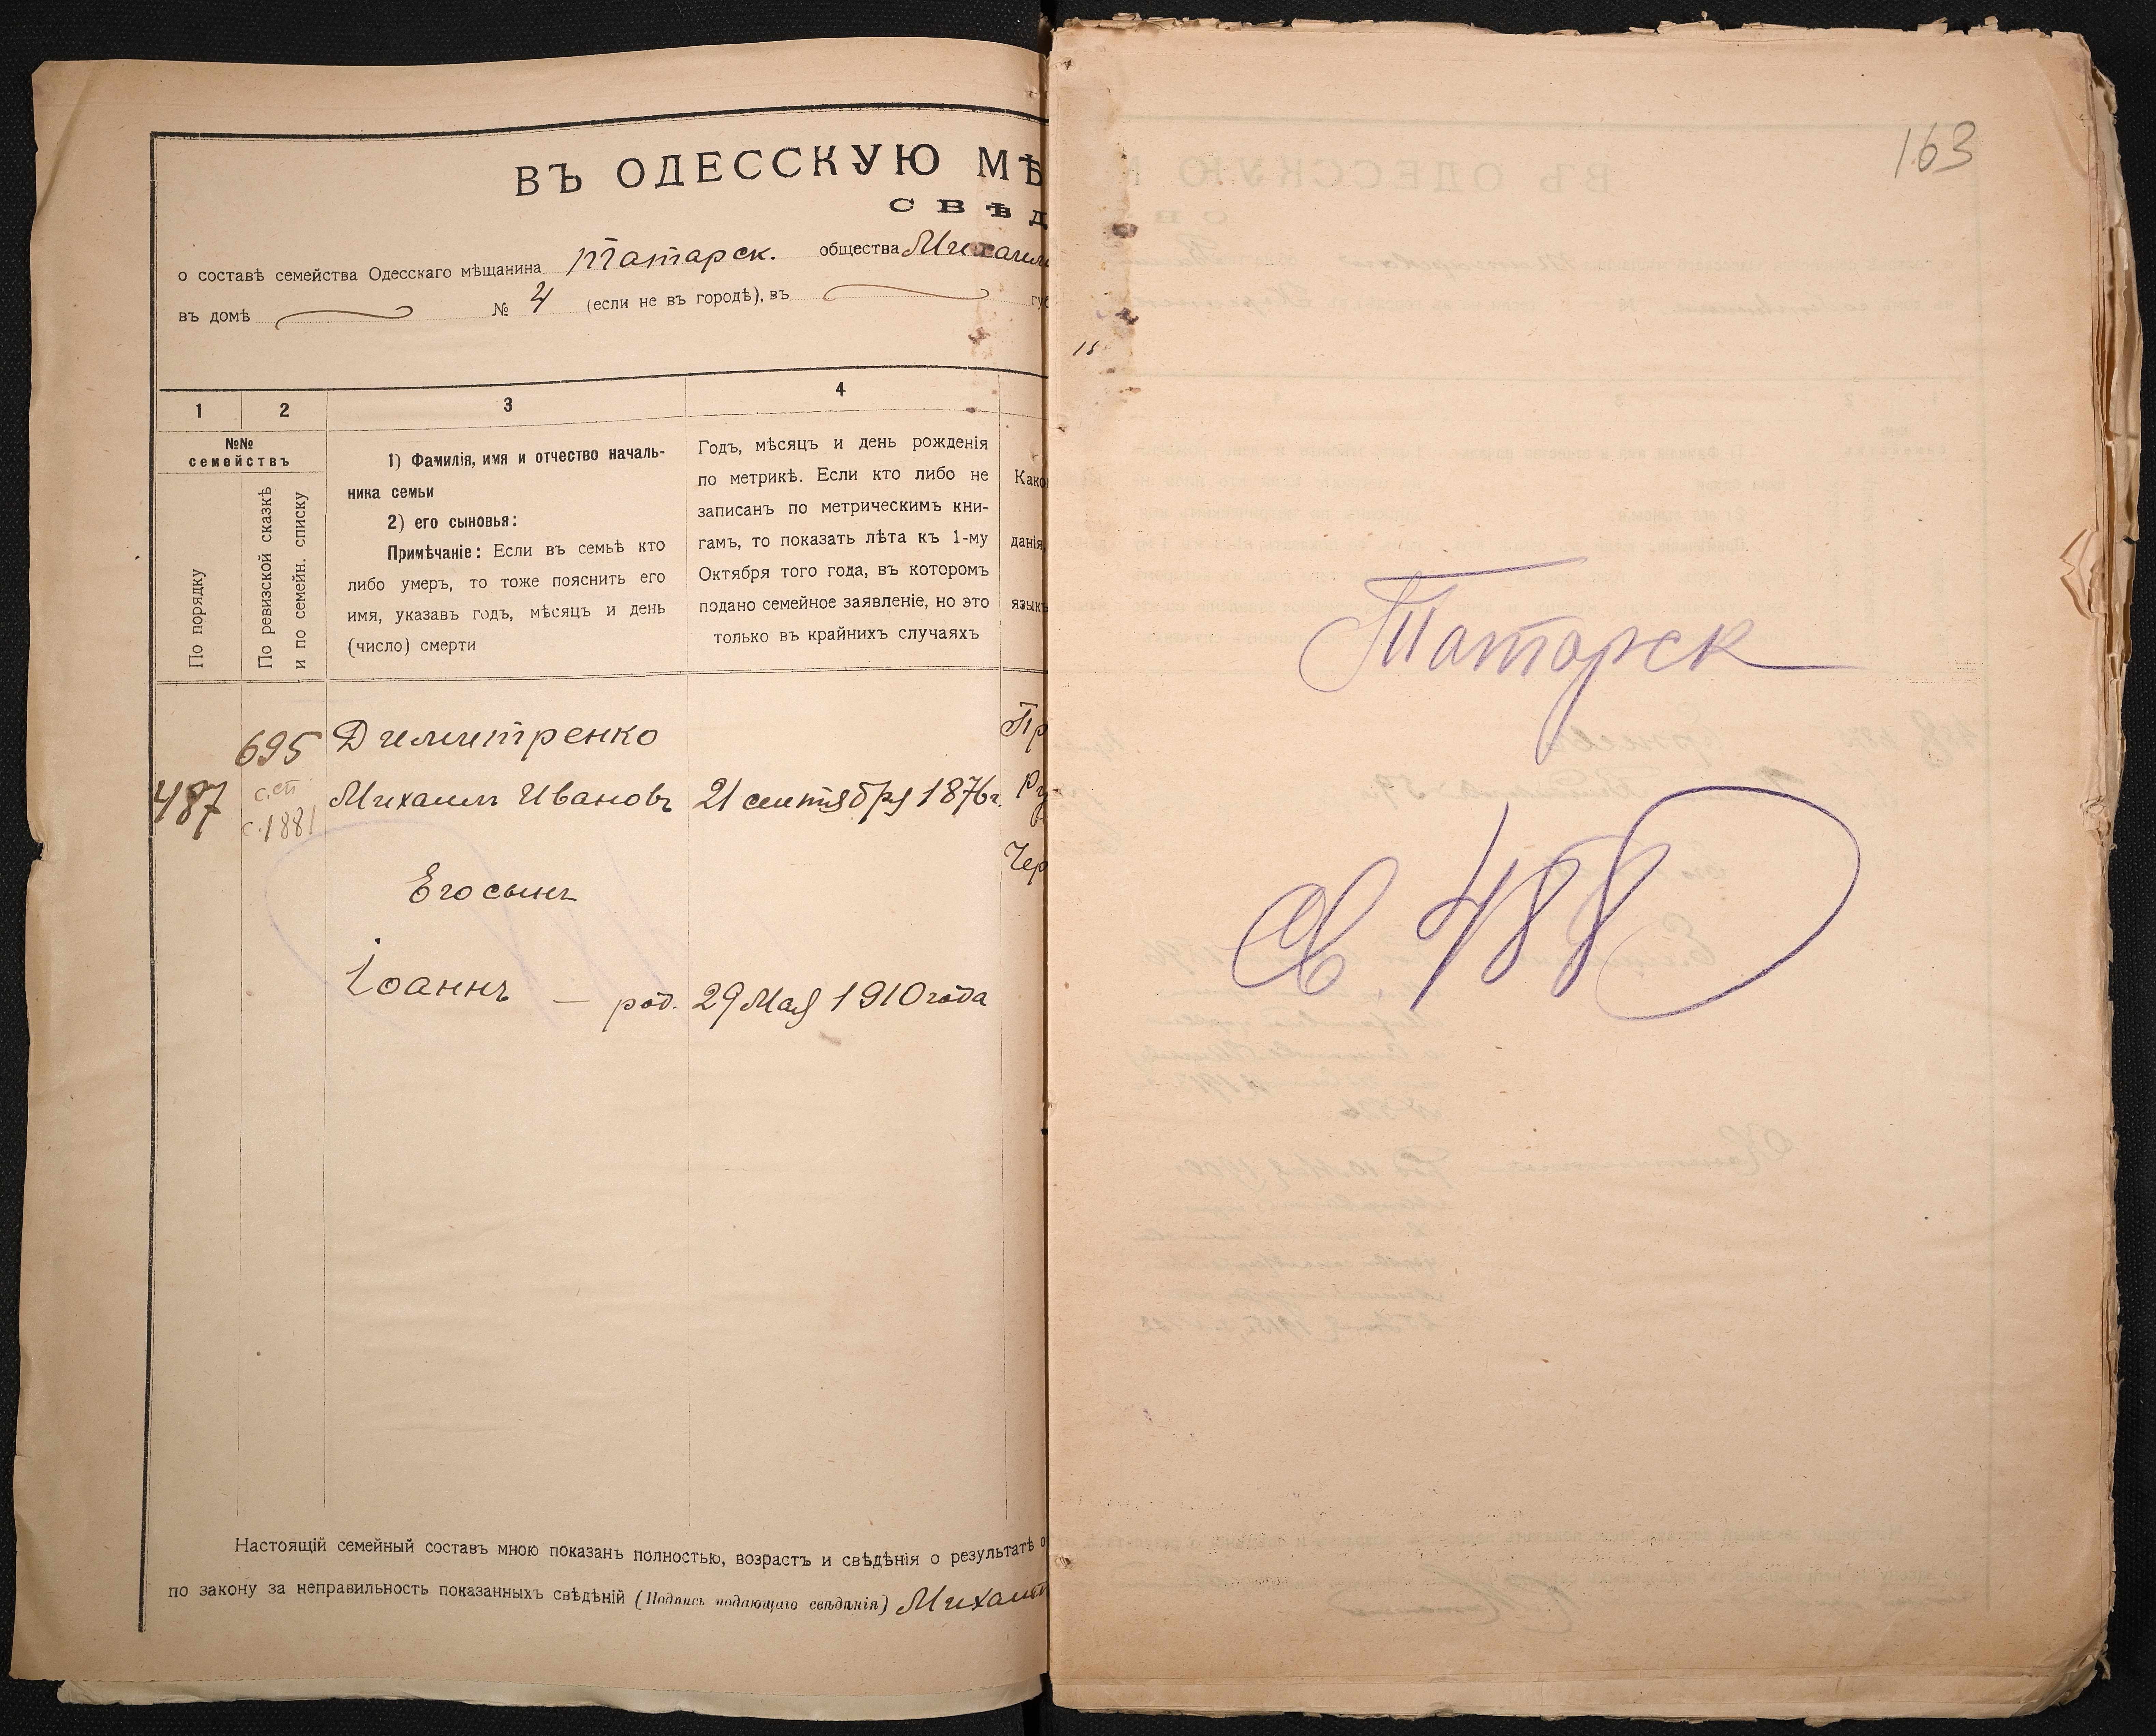 ВЪ ОДЕССКУЮ МѢ
СВѢД
о составѣ семейства Одесскаго мѣщанина татарск. общества Михаил
въ домѣ № 4 (если не въ городѣ), въ гус
1 2 3 4
№№ семействъ
По порядку
По ревизской сказкѣ и по семейн. списку
1) Фамилія, имя и отчество началь-
ника семьи
2) его сыновья:
Примѣчаніе: Если въ семьѣ кто
либо умеръ, то тоже пояснить его
имя, указавъ годъ, мѣсяцъ и день
(число) смерти
Годъ, мѣсяцъ и день рожденія
по метрикѣ. Если кто либо не
записанъ по метрическимъ кни-
гамъ, то показать лѣта къ 1-му
Октября того года, въ которомъ
подано семейное заявленіе, но это
только въ крайнихъ случаяхъ
Како
данія
язык
695 Димитренко Пр
487 с.сп с.1881 Михаилъ Ивановъ 21 сентября 1876г. Ру
Чер
Его сынъ
Іоаннъ — род. 29 Мая 1910 года
Настоящій семейный составъ мною показанъ полностью, возрастъ и свѣдѣнія о результатѣ о
по закону за неправильность показанныхъ свѣдѣній (Подпись подающаго свѣдѣнія) Михаил
163
15
Татарск
488